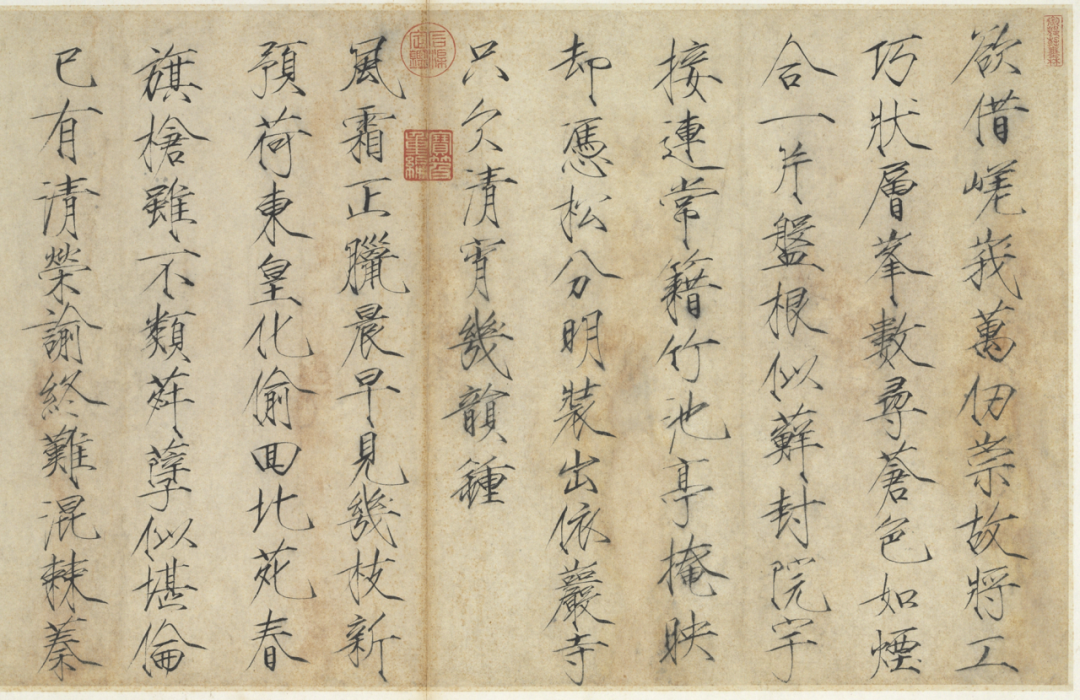 欲借嵯峨萬仞崇故將工
巧狀層峯數尋蒼色如煙
合一片盤根似蘚封院宇
接連常籍竹池亭掩映
却憑松分明裝出依巖寺
只欠清宵幾韻鍾
石渠定鑑
寶笈重編
風霜正臘晨早見幾枝新
預荷東皇化偷回北苑春
旗槍雖不類荈孽似堪倫
已有清榮諭終難混棘蓁